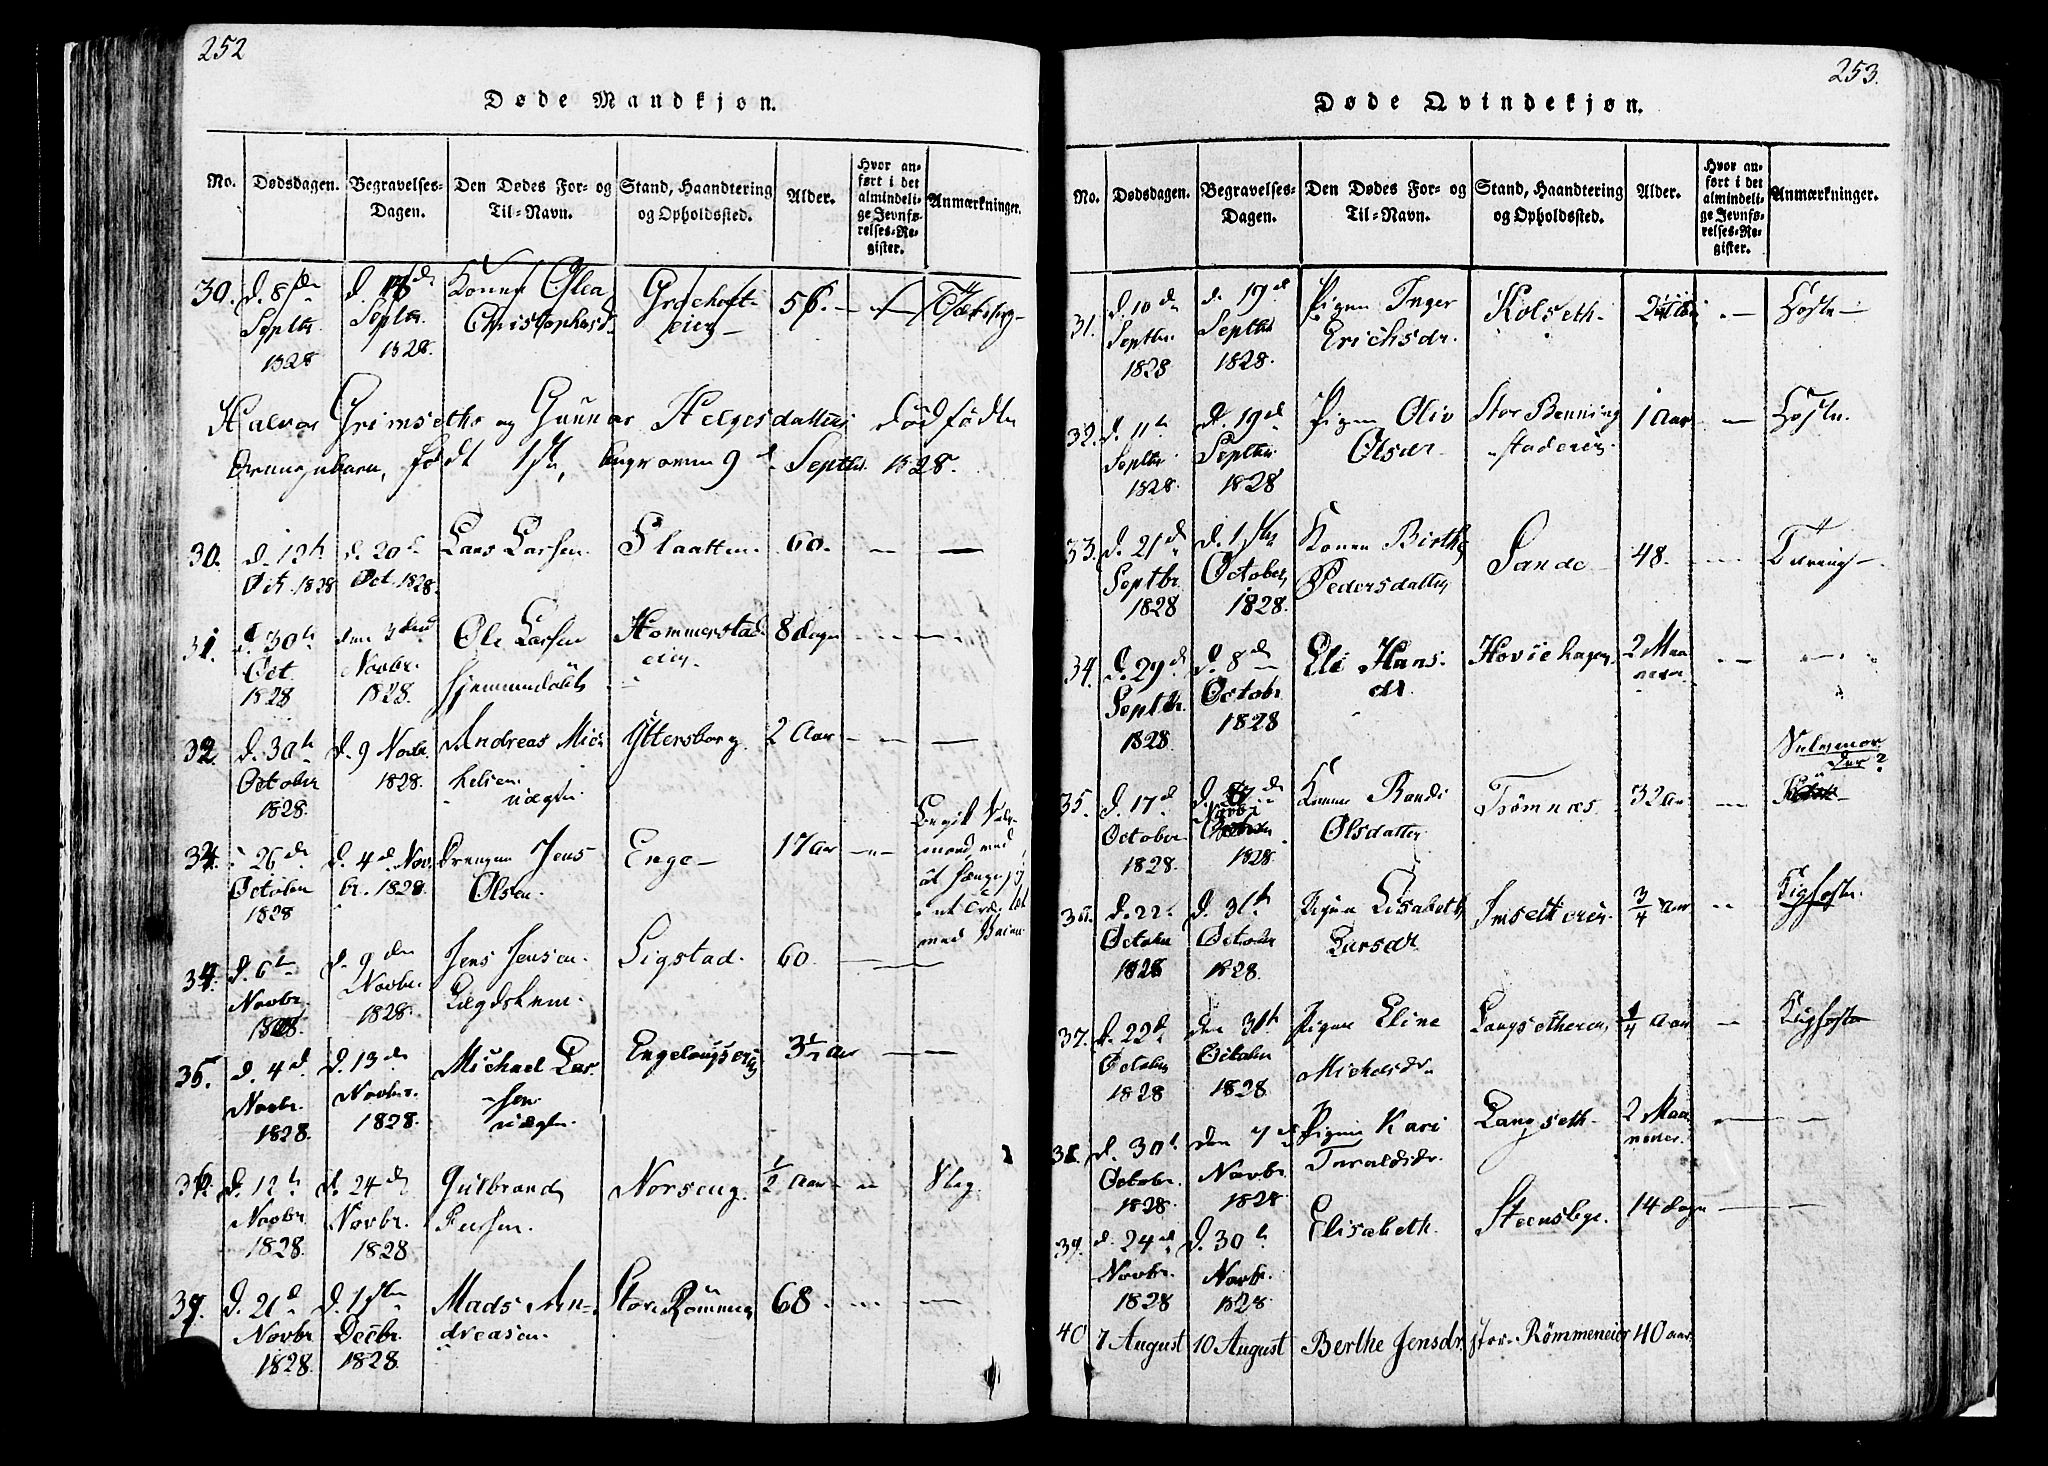 252
Døde Mandkjøn.
No.
Dødsdagen.
Begravelses-
Dagen.
Den Dødes For- og
Til-Navn.
Stand, Haandtering
og Opholdssted.
Alder.
Hvor an-
ført i det
almindeli-
ge Jevnfø-
relses-Re-
gister.
Anmærkninger.
30. d. 8de
Septbr.
1828
Septbr.
1828.
Konen Olea
Christophersd.
eier
56.
Halvor Grimseths og Gunnor Helgesdatters dødfødte
Drengebarn, født 1ste, begraven 9d Septbr. 1828.
30. d. 12t
Oct. 1828
d. 20de
Oct. 1828.
Lars Larsen.
Slaatten.
60.
31. d. 30te
Oct.
1828
den 3die
Novbr.
1828.
Ole Larsen
Hommerstad
eier
8 dage
32. d. 30te
October
1828.
d. 9 Novbr.
1828.
Andreas Mic-
helsen.
uægte
Yttersborg.
2 Aar
26de
October
1828
d. 4de Nov-
br. 1828.
Drengen Jens
Olsen.
Enge
17 Aar
34. d. 6te
Novbr.
1828.
d. 9den
Novbr.
1828.
Jens Jensen.
Lægdslem.
Sigstad.
60.
35. d. 4d.
Novbr.
1828.
d. 13de
Novbr.
1828.
Michael Lar-
sen
uægte.
3½ Aar
36. d. 12te
Novbr.
1828.
d. 24de
Novbr.
1828
Gulbrand
Norseng.
½ Aar
Slag.
37. d. 21d
Novbr
1828.
d. 1ste
Decbr.
1828.
Mads An-
dreasen.
Store Rømmen
68.
253.
Døde Qvindekjøn.
No.
Dødsdagen.
Begravelses-
Dagen.
Den Dødes For- og
Til-Navn.
Stand, Haandtering
og Opholdssted.
Alder.
Hvor an-
ført i det
almindeli-
ge Jevnfø-
relses-Re-
gister.
Anmærkninger.
31. d. 10de
Septbr.
1828
d. 19de
Septbr.
1828.
Pigen Inger
Erichsdr.
Kolseth
Hoste
32. d. 11te
Septbr.
1828.
d. 19de
Septbr.
1828
Pigen Oliv
Olsdr.
Stor Benning
stadeier.
1 Aar
Hoste.
33. d. 21de
Septbr.
1828
d. 1ste
October
1828.
Konen Birthe
Pedersdatter
Sande
48.
Tæring
34. d. 29de
Septbr.
1828.
d. 8de
Octobr
1828
Eli Hans-
dr
Hovie hagen
2 Maa
neder
35. d. 17d
October
1828.
d. 7de
Novbr.
1828.
Konen Randi
Olsdatter
Trømnæs.
32 Aar
Selvmor
der?
36. d. 22de
October
1828
d. 31te
October
1828.
Pigen Lisabeth
Larsdr
Imset eier.
¾ Aar
Kighoste.
37. d. 22de
October
1828
den 31te
October
1828.
Pigen Eline
Michelsdr.
Langsetheier
¼ Aar
Kighoste
38. d. 30te
Octobr.
1828.
den 7de
Novbr.
1828.
Pigen Kari
Taraldsdr.
Langseth.
2 Maa
neder.
39. d. 24de
Novbr.
1828
d. 30te
Novbr.
1828.
Elisabeth.
Steensbye.
14 dage
40 7 August 10 August Berthe Jensdr. stor-Rømmeneier 40 aar.